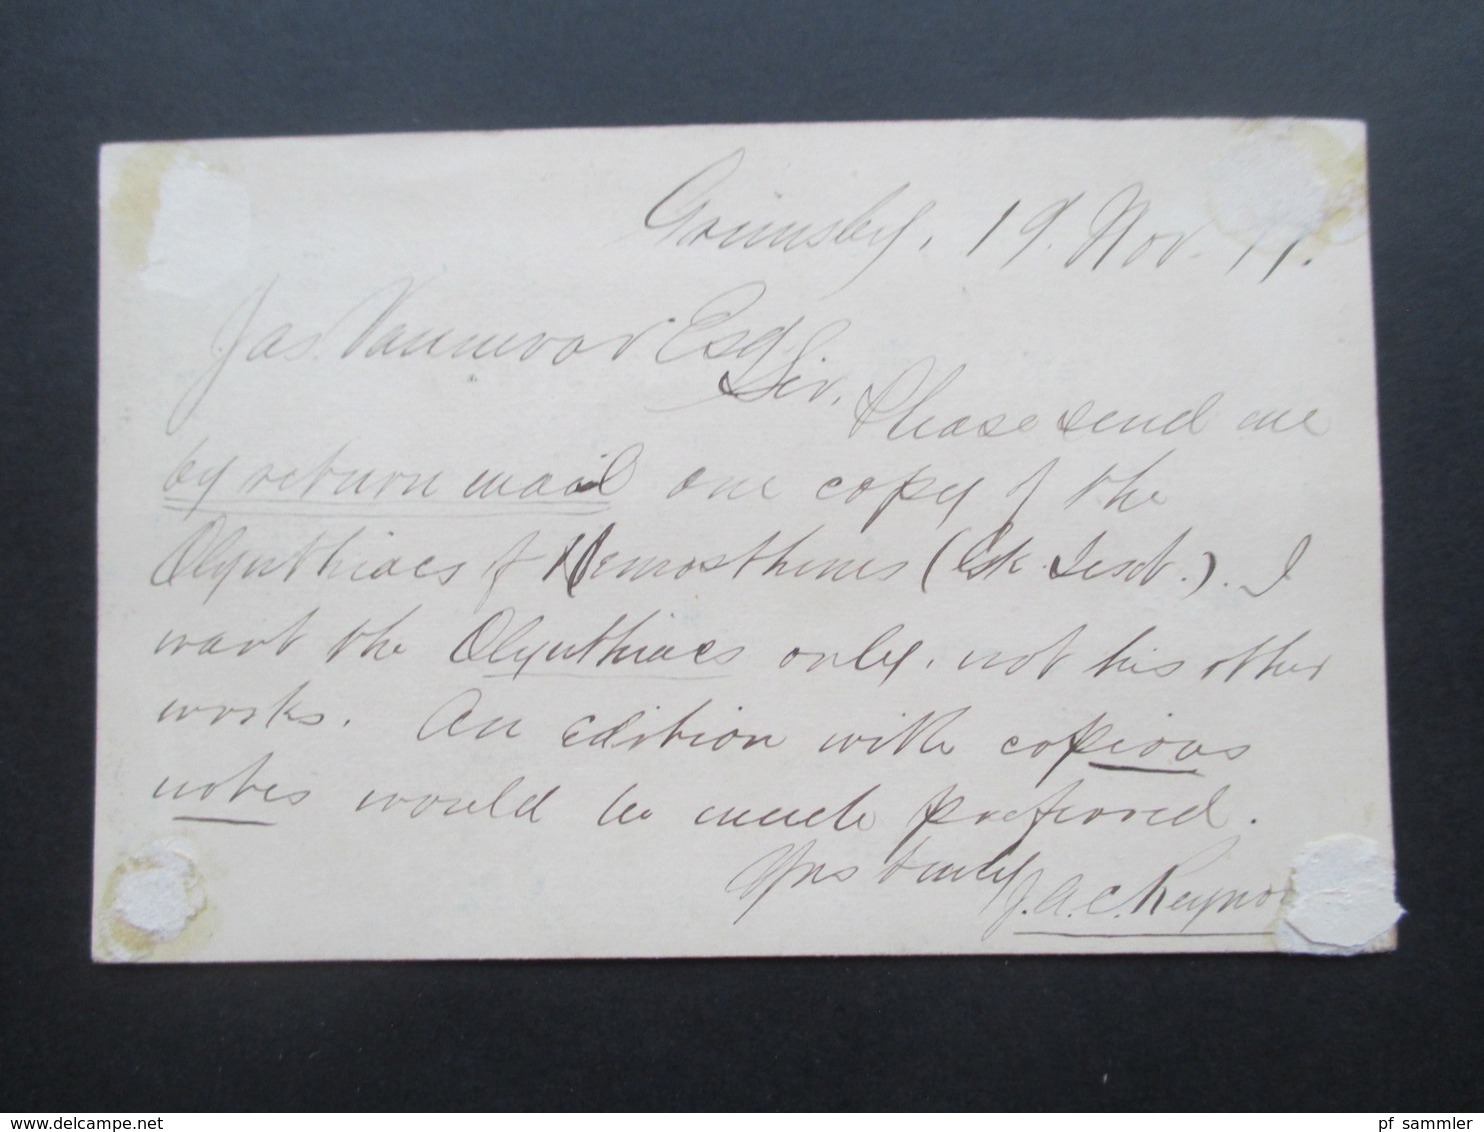 Grimsby, 19. Nov. 77.
Jas. Vannevar Esq.
Sir, Please send me
by return mail one copy of the
Olynthiacs of Demosthenes (Gk. Text.). I
want the Olynthiacs only, not his other
works. An edition with copious
notes would be much preferred.
Yrs truly
J. A. C. Reynor
pf sammler